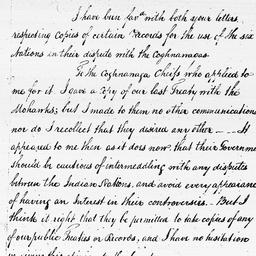 I have been fav.d with both your letters
respecting copies of certain Records for the use of the six
Nations in their dispute with the Coghnawagas.
To the Coghnawaga Chiefs who applied to
me for it. I gave a Copy of our last Treaty with the
Mohawks; but I made to them no other communications
nor do I recollect that they desired any other - - - It
appeared to me then as it does now that their Government
should be cautious of intermeddling with any disputes
between the Indian Nations, and avoid every appearance
of having an Interest in their controversies. - But I
think it right that they be permitted to take copies of any
of our public Treaties or Records, and I have no hesitation